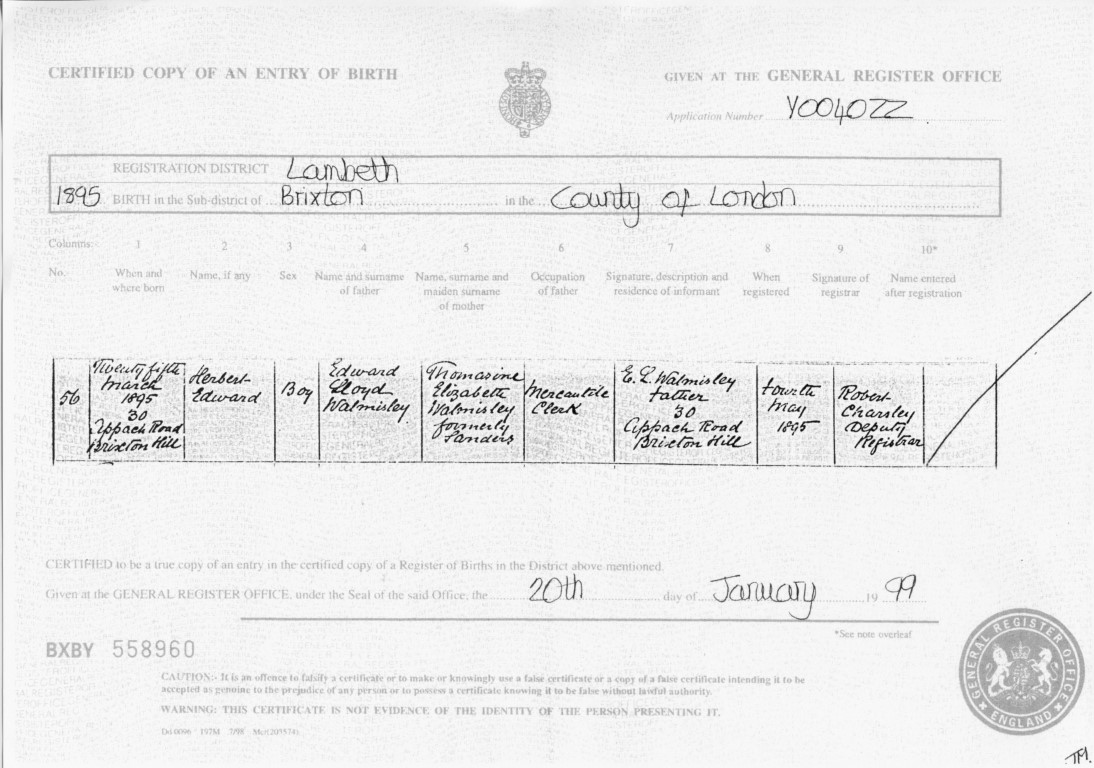 CERTIFIED COPY OF AN ENTRY OF BIRTH
GIVEN AT THE GENERAL REGISTER OFFICE
Application Number Y004022
REGISTRATION DISTRICT Lambeth
1895 BIRTH in the Sub-district of Brixton in the County of London
Columns: 1 2 3 4 5 6 7 8 9 10*
No. When and where born Name, if any Sex Name and surname of father Name, surname and maiden surname of mother Occupation of father Signature, description and residence of informant When registered Signature of registrar Name entered after registration
56
Twenty fifth
March
1895
30
Appach Road
Brixton Hill
Herbert
Edward
Boy
Edward
Lloyd
Walmisley
Thomasine
Elizabeth
Walmisley
formerly
Sanders
Mercantile
Clerk
E. L. Walmisley
Father
30
Appach Road
Brixton Hill
Fourth
May
1895
Robert
Charsley
Deputy
Registrar
CERTIFIED to be a true copy of an entry in the certified copy of a Register of Births in the District above mentioned.
Given at the GENERAL REGISTER OFFICE, under the Seal of the said Office, the 20th day of January 19 99
*See note overleaf
BXBY 558960
CAUTION:- It is an offence to falsify a certificate or to make or knowingly use a false certificate or a copy of a false certificate intending it to be
accepted as genuine to the prejudice of any person or to possess a certificate knowing it to be false without lawful authority.
WARNING: THIS CERTIFICATE IS NOT EVIDENCE OF THE IDENTITY OF THE PERSON PRESENTING IT.
GENERAL REGISTER OFFICE
ENGLAND